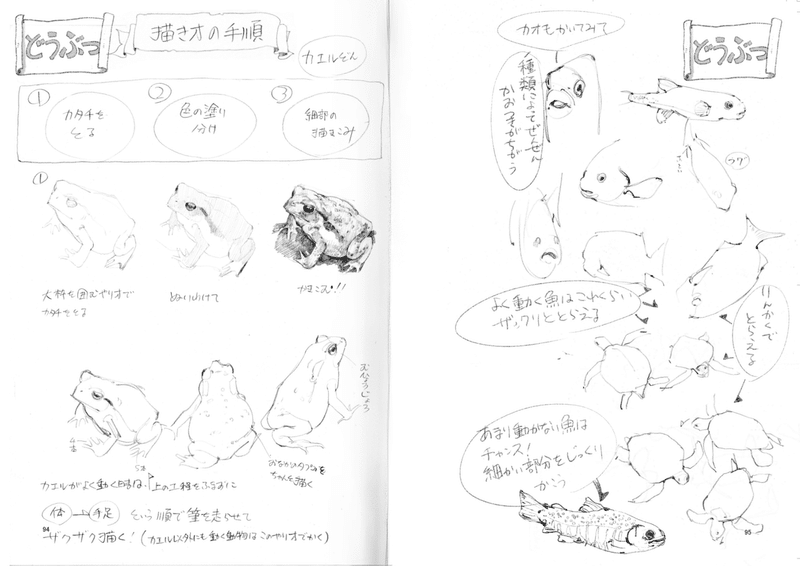 どうぶつ
描き方の手順
カエルさん
①
カタチを
とる
②
色の塗り
分け
③
細部の
描きこみ
①
大枠を囲むやり方で
カタチをとる
ぬりわけて
かきこむ!!
4本
5本
カエルがよく動く時は、上の工程をふまずに
体→手足
という順で筆を走らせて
ザクザク描く!(カエル以外にも動く動物はこのやり方でかく)
94
どうぶつ
カオもかいてみて
種類によってぜんぜん
かおつきがちがう
フグ
よく動く魚はこれくらい
ザックリととらえる
りんかくで
とらえる
あまり動かない魚は
チャンス!
細かい部分をじっくり
かこう
95